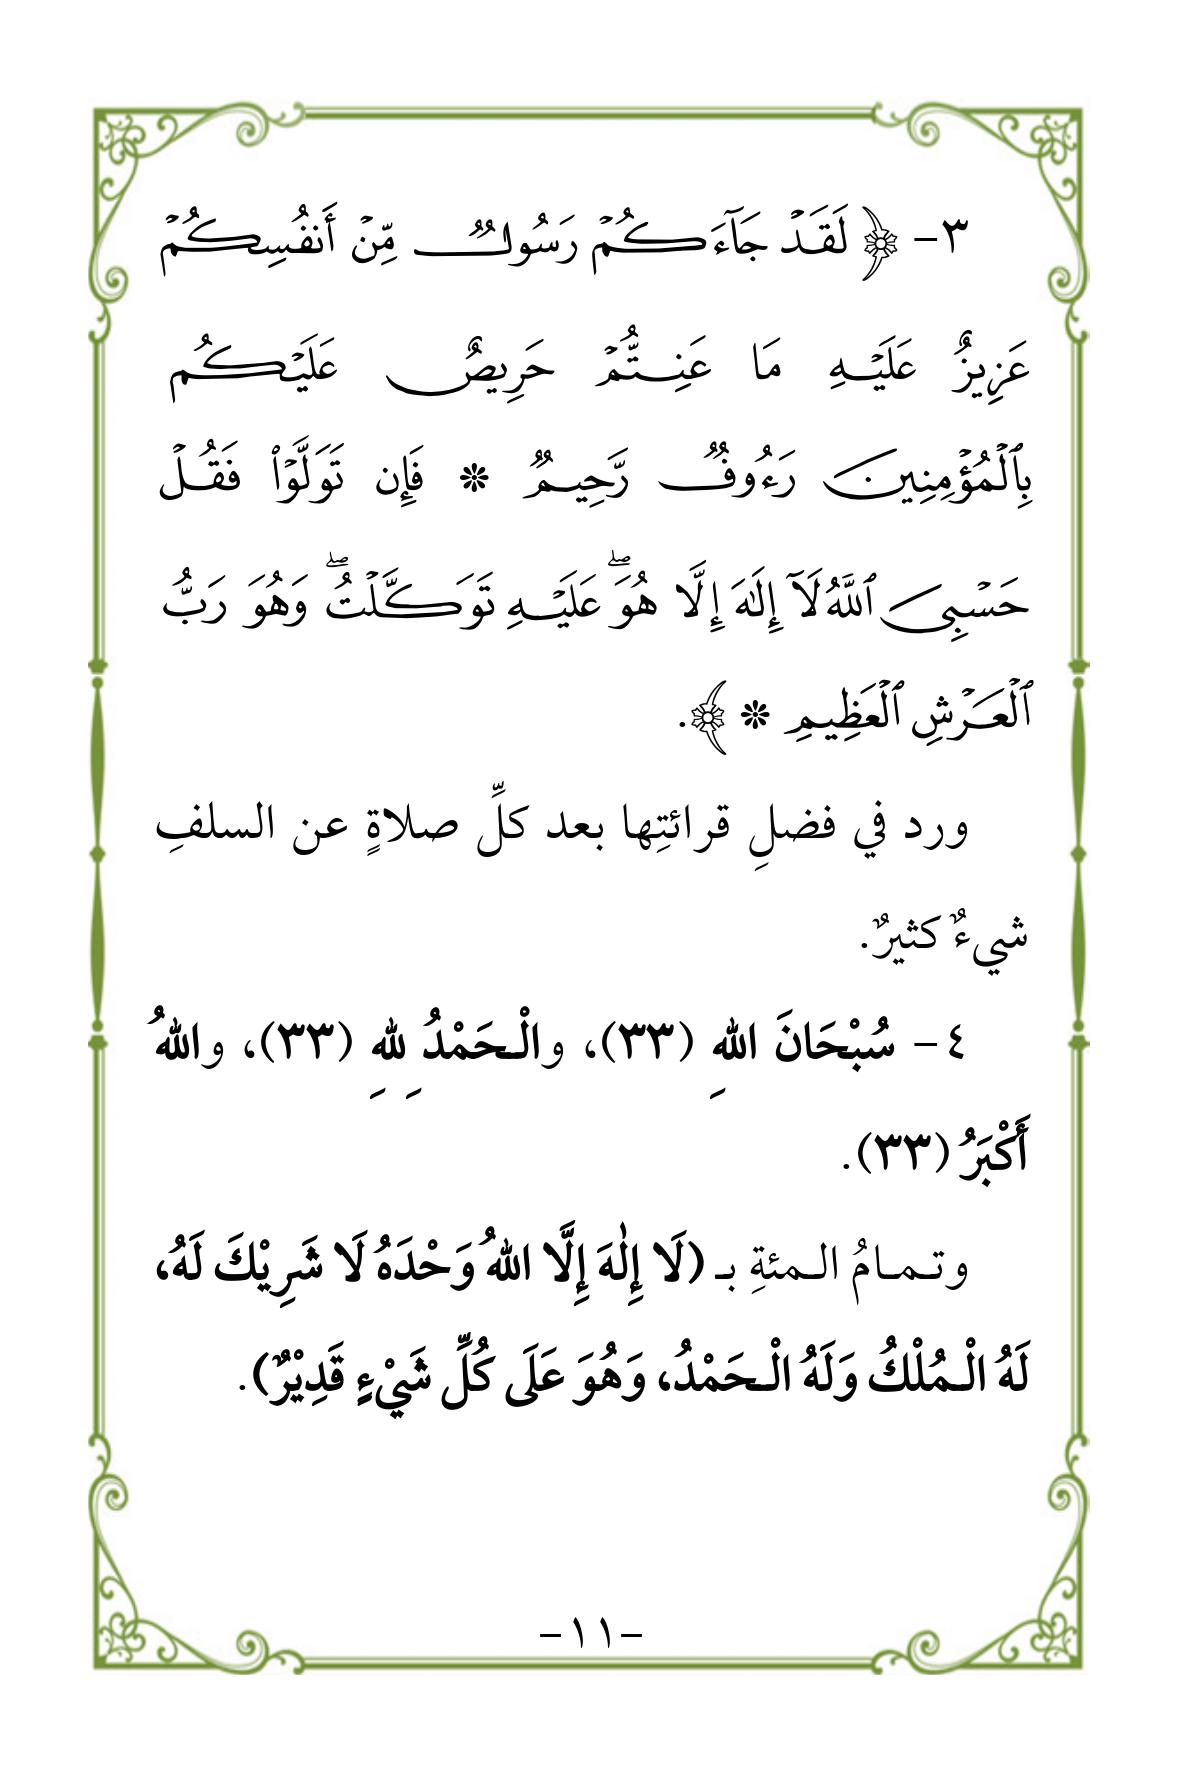 ٣- ﴿ لَقَدۡ جَآءَكُمۡ رَسُولٌ مِّنۡ أَنفُسِكُمۡ
عَزِيزٌ عَلَيۡهِ مَا عَنِتُّمۡ حَرِيصٌ عَلَيۡكُم
بِٱلۡمُؤۡمِنِينَ رَءُوفٌ رَّحِيمٌ * فَإِن تَوَلَّوۡاْ فَقُلۡ
حَسۡبِيَ ٱللَّهُ لَآ إِلَٰهَ إِلَّا هُوَۖ عَلَيۡهِ تَوَكَّلۡتُۖ وَهُوَ رَبُّ
ٱلۡعَرۡشِ ٱلۡعَظِيمِ * ﴾.
ورد في فضلِ قرائتِها بعد كلِّ صلاةٍ عن السلفِ
شيءٌ كثيرٌ.
٤- سُبْحَانَ اللهِ (٣٣)، والْـحَمْدُ لِلهِ (٣٣)، واللهُ
أَكْبَرُ (٣٣).
وتـمـامُ الـمئةِ بـ (لَا إِلٰهَ إِلَّا اللهُ وَحْدَهُ لَا شَرِيْكَ لَهُ،
لَهُ الْـمُلْكُ وَلَهُ الْـحَمْدُ، وَهُوَ عَلَى كُلِّ شَيْءٍ قَدِيْرٌ).
-١١-